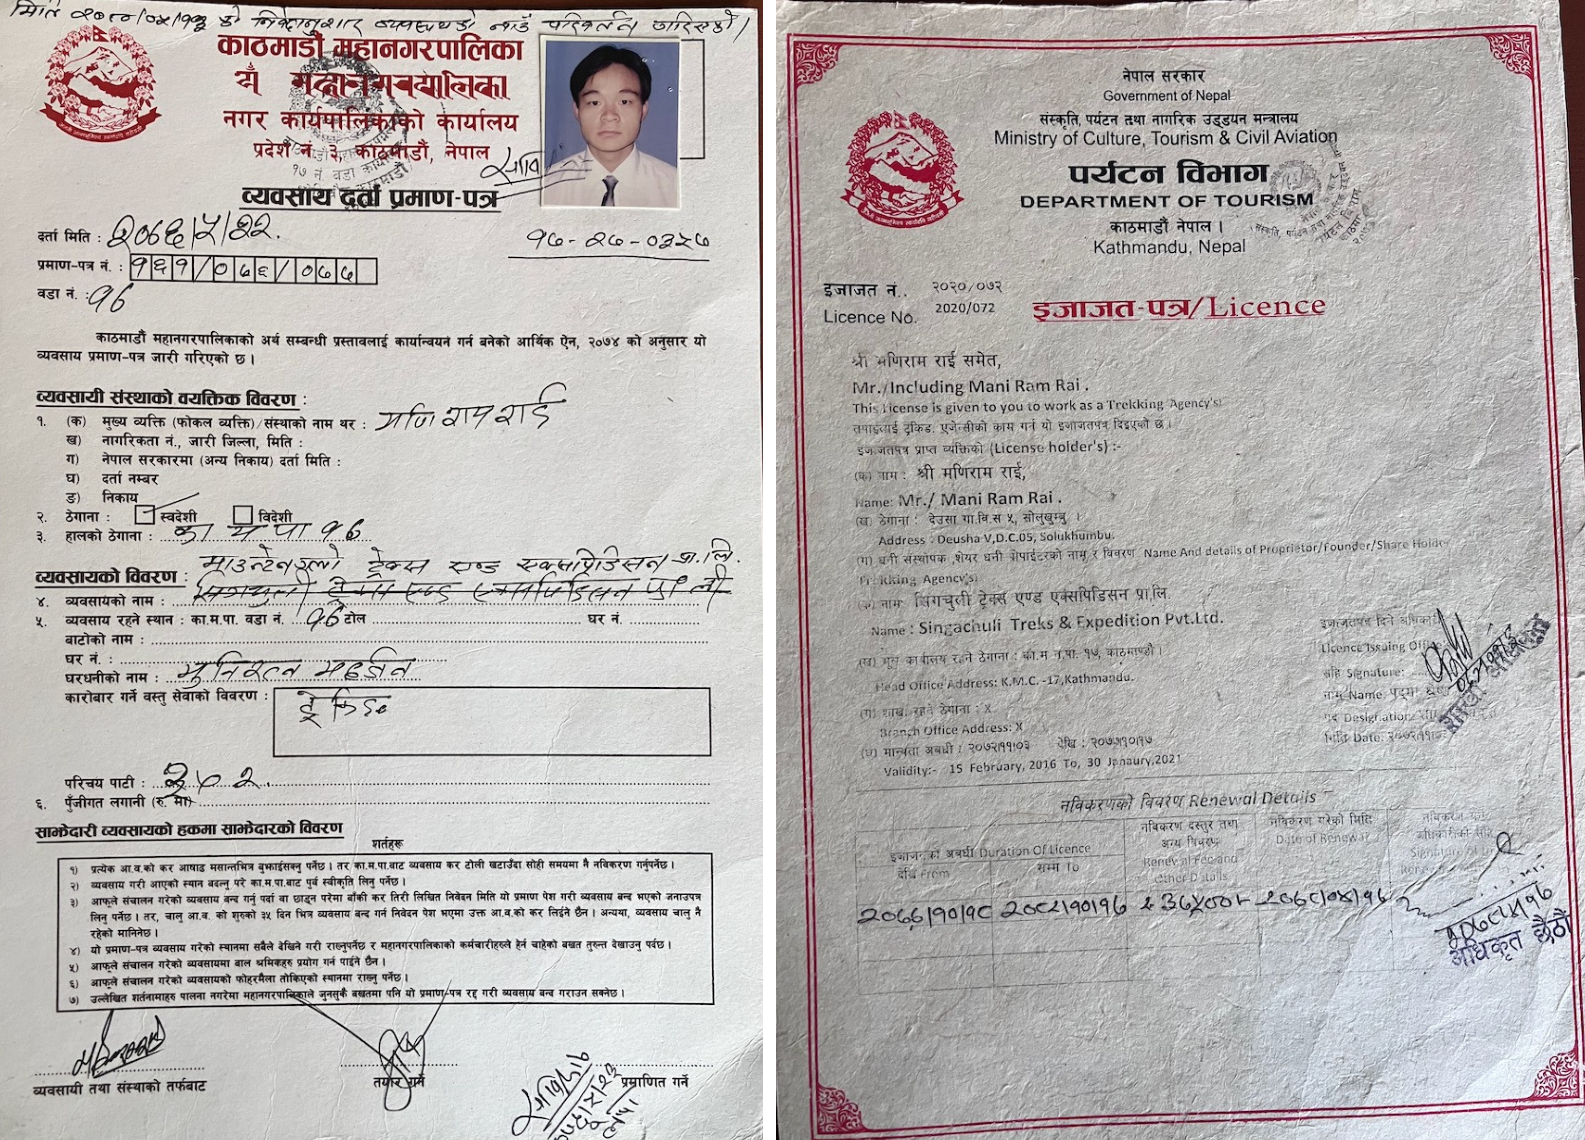 मिति २०८०/०५/१५ को निवेदनुशार व्यवसायको नाउँ परिवर्तन जारिएको।
काठमाडौं महानगरपालिका
नगर कार्यपालिकाको कार्यालय
प्रदेश नं. ३, काठमाडौं, नेपाल
व्यवसाय दर्ता प्रमाण-पत्र
दर्ता मिति : २०७६/५/२२.
१७-२७-०३५७
प्रमाण-पत्र नं. : १६१/०७६/०७७
वडा नं. : १७
काठमाडौं महानगरपालिकाको अर्थ सम्बन्धी प्रस्तावलाई कार्यान्वयन गर्न बनेको आर्थिक ऐन, २०७४ को अनुसार यो
व्यवसाय प्रमाण-पत्र जारी गरिएको छ ।
व्यवसायी संस्थाको वयक्तिक विवरण :
१. (क) मुख्य व्यक्ति (फोकल व्यक्ति)/संस्थाको नाम थर : मणि राम राई
ख) नागरिकता नं., जारी जिल्ला, मिति :
ग) नेपाल सरकारमा (अन्य निकाय) दर्ता मिति :
घ) दर्ता नम्बर
ङ) निकाय
२. ठेगाना : स्वदेशी विदेशी
३. हालको ठेगाना : का म पा १७
माउन्टेन ग्लो ट्रेक्स एण्ड एक्सपिडिसन प्रा.लि.
व्यवसायको विवरण :
४. व्यवसायको नाम :
५. व्यवसाय रहने स्थान : का.म.पा. वडा नं. १७ टोल घर नं.
बाटोको नाम :
घर नं. :
घरधनीको नाम : मुनिरत्न महर्जन
कारोबार गर्ने वस्तु सेवाको विवरण : ट्रेकिङ
परिचय पाटी : २५०२
६. पुँजीगत लगानी (रु. मा)
साझेदारी व्यवसायको हकमा साझेदारको विवरण
शर्तहरू
१) प्रत्येक आ.व.को कर आषाढ मसान्तभित्र बुझाईसक्नु पर्नेछ । तर का.म.पा.बाट व्यवसाय कर टोली खटाउँदा सोही समयमा नै नविकरण गर्नुपर्नेछ ।
२) व्यवसाय गरी आएको स्थान बदल्नु परे का.म.पा.बाट पुर्व स्वीकृति लिनु पर्नेछ ।
३) आफुले संचालन गरेको व्यवसाय बन्द गर्नु पर्दा वा छाड्न परेमा बाँकी कर तिरी लिखित निवेदन मिति यो प्रमाण पेश गरी व्यवसाय बन्द भएको जनाउपत्र
लिनु पर्नेछ । तर, चालु आ.व. को शुरुको ३५ दिन भित्र व्यवसाय बन्द गर्न निवेदन पेश भएमा उक्त आ.व.को कर लिईने छैन । अन्यथा, व्यवसाय चालु नै
रहेको मानिनेछ ।
४) यो प्रमाण-पत्र व्यवसाय गरेको स्थानमा सबैले देखिने गरी राख्नुपर्नेछ र महानगरपालिकाको कर्मचारीहरुले हेर्न चाहेको बखत तुरुन्त देखाउनु पर्दछ ।
५) आफुले संचालन गरेको व्यवसायमा बाल श्रमिकहरु प्रयोग गर्न पाईने छैन ।
६) आफुले संचालन गरेको व्यवसायको फोहरमैला तोकिएको स्थानमा राख्नु पर्नेछ ।
७) उल्लेखित शर्तनामाहरु पालना नगरेमा महानगरपालिकाले जुनसुकै बखतमा पनि यो प्रमाण-पत्र रद्द गरी व्यवसाय बन्द गराउन सक्नेछ ।
व्यवसायी तथा संस्थाको तर्फबाट तयार गर्ने प्रमाणित गर्ने
नेपाल सरकार
Government of Nepal
संस्कृति, पर्यटन तथा नागरिक उड्डयन मन्त्रालय
Ministry of Culture, Tourism & Civil Aviation
पर्यटन विभाग
DEPARTMENT OF TOURISM
काठमाडौं नेपाल ।
Kathmandu, Nepal
इजाजत नं.. २०२०/०७२
Licence No. 2020/072
इजाजत-पत्र/Licence
श्री मणिराम राई समेत,
Mr./Including Mani Ram Rai .
This License is given to you to work as a Trekking Agency's
तपाईलाई ट्रेकिङ एजेन्सीको काम गर्न यो इजाजतपत्र दिइएको छ ।
इजाजतपत्र प्राप्त व्यक्तिको (License holder's) :-
(क) नाम : श्री मणिराम राई,
Name: Mr./ Mani Ram Rai .
(ख) ठेगाना : देउसा गा.वि.स ५, सोलुखुम्बु ।
Address : Deusha V,D.C.05, Solukhumbu.
(ग) धनी संस्थापक ,शेयर धनी प्रोपाईटरको नाम र विवरण Name And details of Proprietor/Founder/Share Holder
Trekking Agency's
(क) नाम: सिंगचुली ट्रेक्स एण्ड एक्सपिडिसन प्रा.लि.
Name : Singachuli Treks & Expedition Pvt.Ltd.
(ख) मुख्य कार्यालय रहने ठेगाना : का.म न.पा. १७, काठमाण्डौ ।
Head Office Address: K.M.C. -17,Kathmandu.
(ग) शाखा रहने ठेगाना : X
Branch Office Address: X
(घ) मान्यता अवधी : २०७२/११/०३ देखि : २०७७/१०/१७
Validity:- 15 February, 2016 To, 30 Janaury,2021
इजाजतपत्र दिने अधिकारी
Licence Issuing Officer
सहि Signature:
नाम Name:
पद Designation:
मिति Date: २०७२/११/०३
शाखा अधिकृत
नविकरणको विवरण Renewal Details
इजाजतको अवधी Duration Of Licence
देखि From सम्म To
नविकरण दस्तुर तथा अन्य विवरण Renewal Fee and Other Details
नविकरण गरेको मिति Date of Renewal
२०७७/१०/१८ २०८२/१०/१७
अधिकृत छैठौं